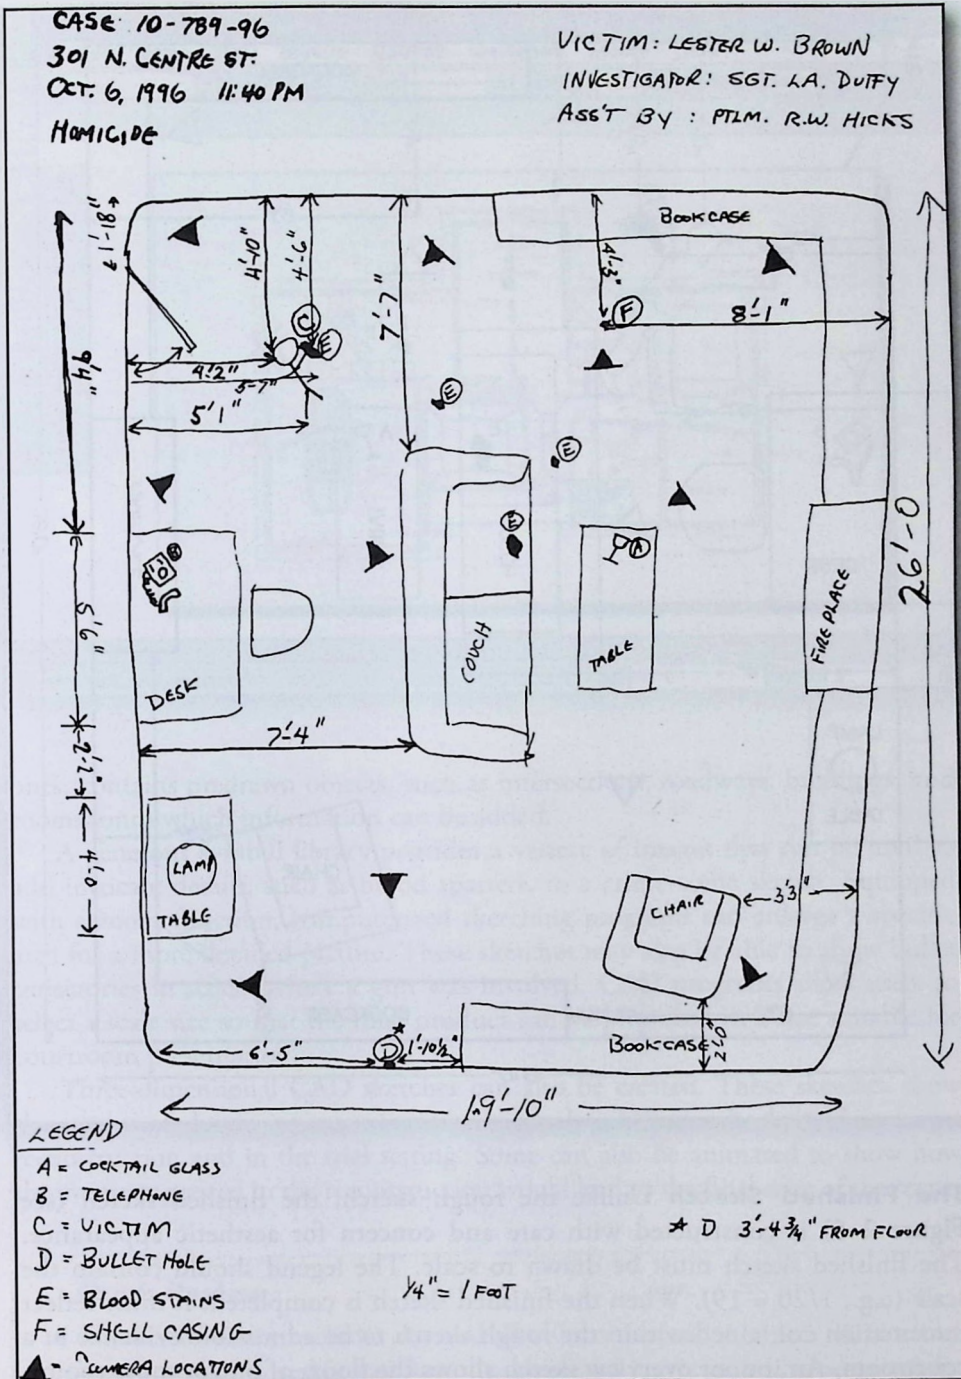 CASE 10-789-96
301 N. CENTRE ST.
OCT. 6, 1996 11:40 PM
HOMICIDE
VICTIM: LESTER W. BROWN
INVESTIGATOR: SGT. L.A. DUFFY
ASS'T BY : PTLM. R.W. HICKS
BOOKCASE
4'-0"
4'-6"
7'-7"
4'-3"
C
F
8'-1"
E
4'2"
3-7"
5'1"
9'4"
E
E
E
A
B
26'-0
5'6"
DESK
COUCH
TABLE
FIRE PLACE
7'-4"
LAMP
TABLE
4'-4"
CHAIR
3'-3"
6'-5"
*
D
1'-10½"
BOOKCASE
2'-0"
19'-10"
LEGEND
A = COCKTAIL GLASS
B = TELEPHONE
C = VICTIM
D = BULLET HOLE
E = BLOOD STAINS
F = SHELL CASING
= CAMERA LOCATIONS
¼" = 1 FOOT
* D. 3'-4¾" FROM FLOOR